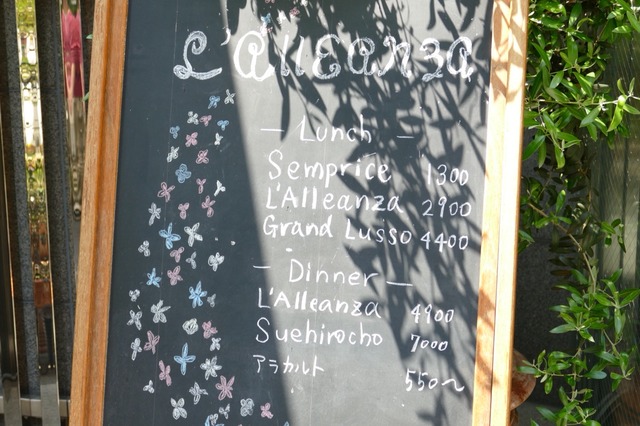 L'AllEAnzA
— Lunch —
Semprice 1300
L'Alleanza 2900
Grand Lusso 4400
— Dinner —
L'Alleanza 4900
Suehirocho 7000
アラカルト 550〜